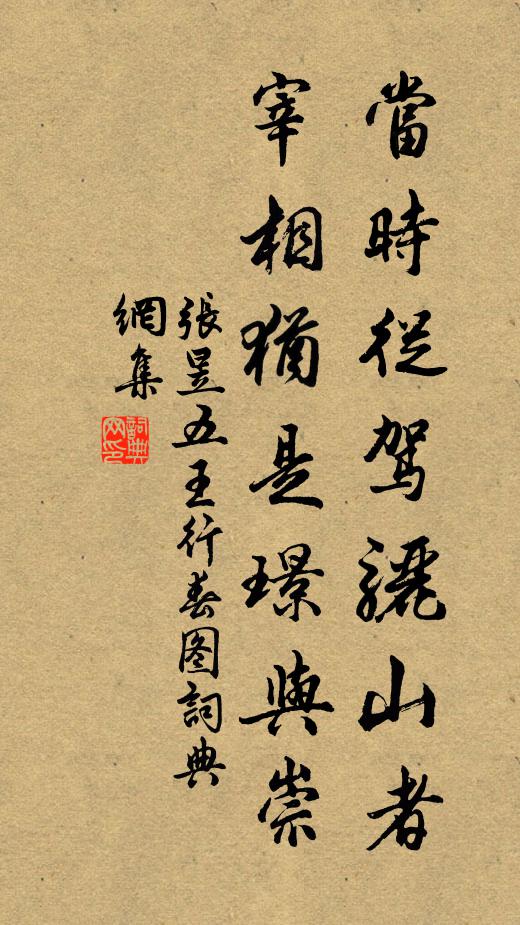 當時從駕驪山者
宰相猶是璟與崇
張昱五王行春图詞典
網集
詞典
网印